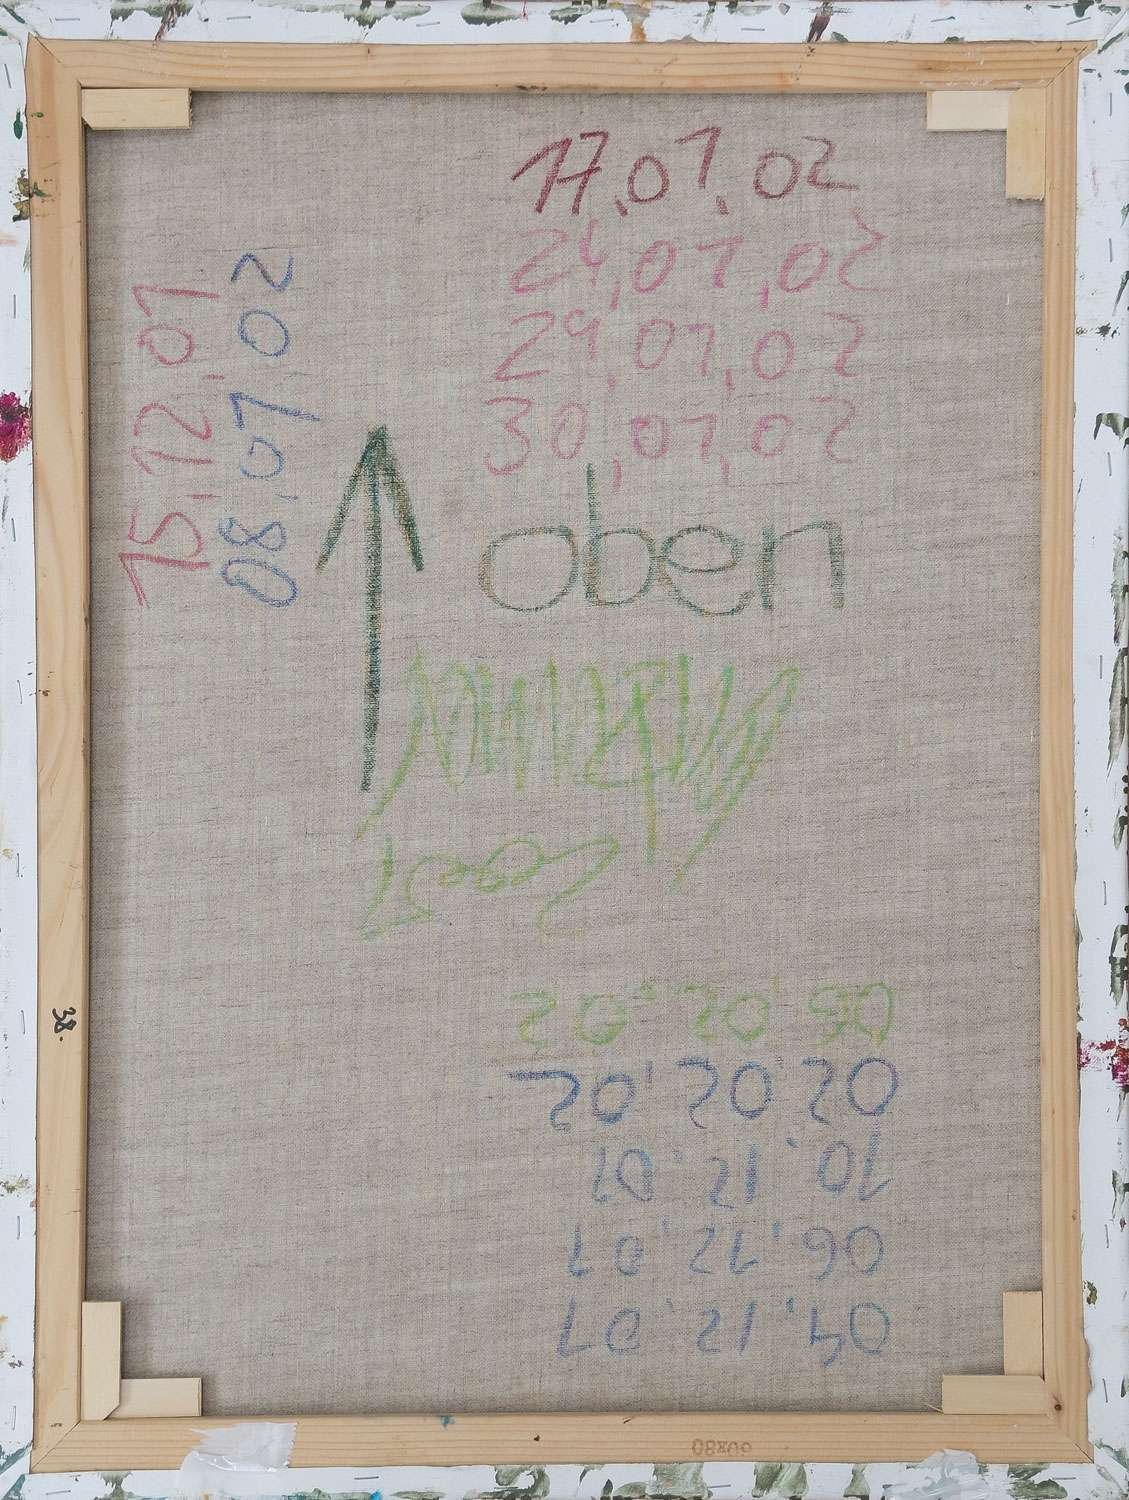 17.01.02
24.01.02
29.01.02
30.01.02
oben
15.12.01
08.01.02
38.
04.12.01
06.12.01
10.12.01
02.02.02
06.02.02
60x80